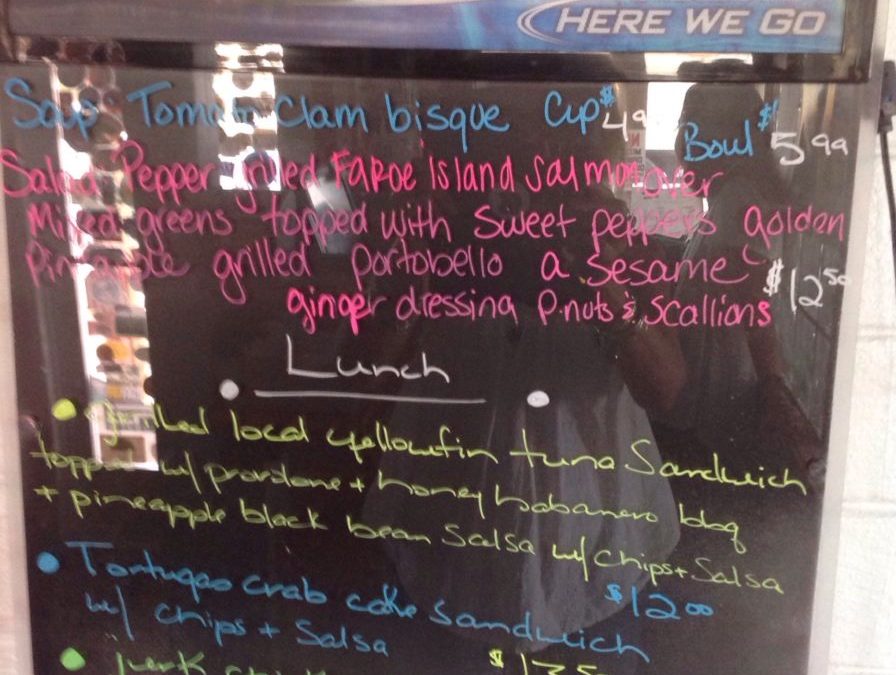 HERE WE GO
Soup Tomato Clam bisque Cup $4 99 Bowl $5 99
Salad Pepper grilled Faroe island salmon over
Mixed greens topped with sweet peppers golden
Pineapple grilled portobello a sesame
ginger dressing P.nuts & scallions $12 50
Lunch
• Grilled local yellowfin tuna Sandwich
topped w/ provolone + honey habanero bbq
+ pineapple black bean salsa w/ chips + Salsa
$12 00
• Tortugas crab cake sandwich
w/ chips + Salsa
• Jerk